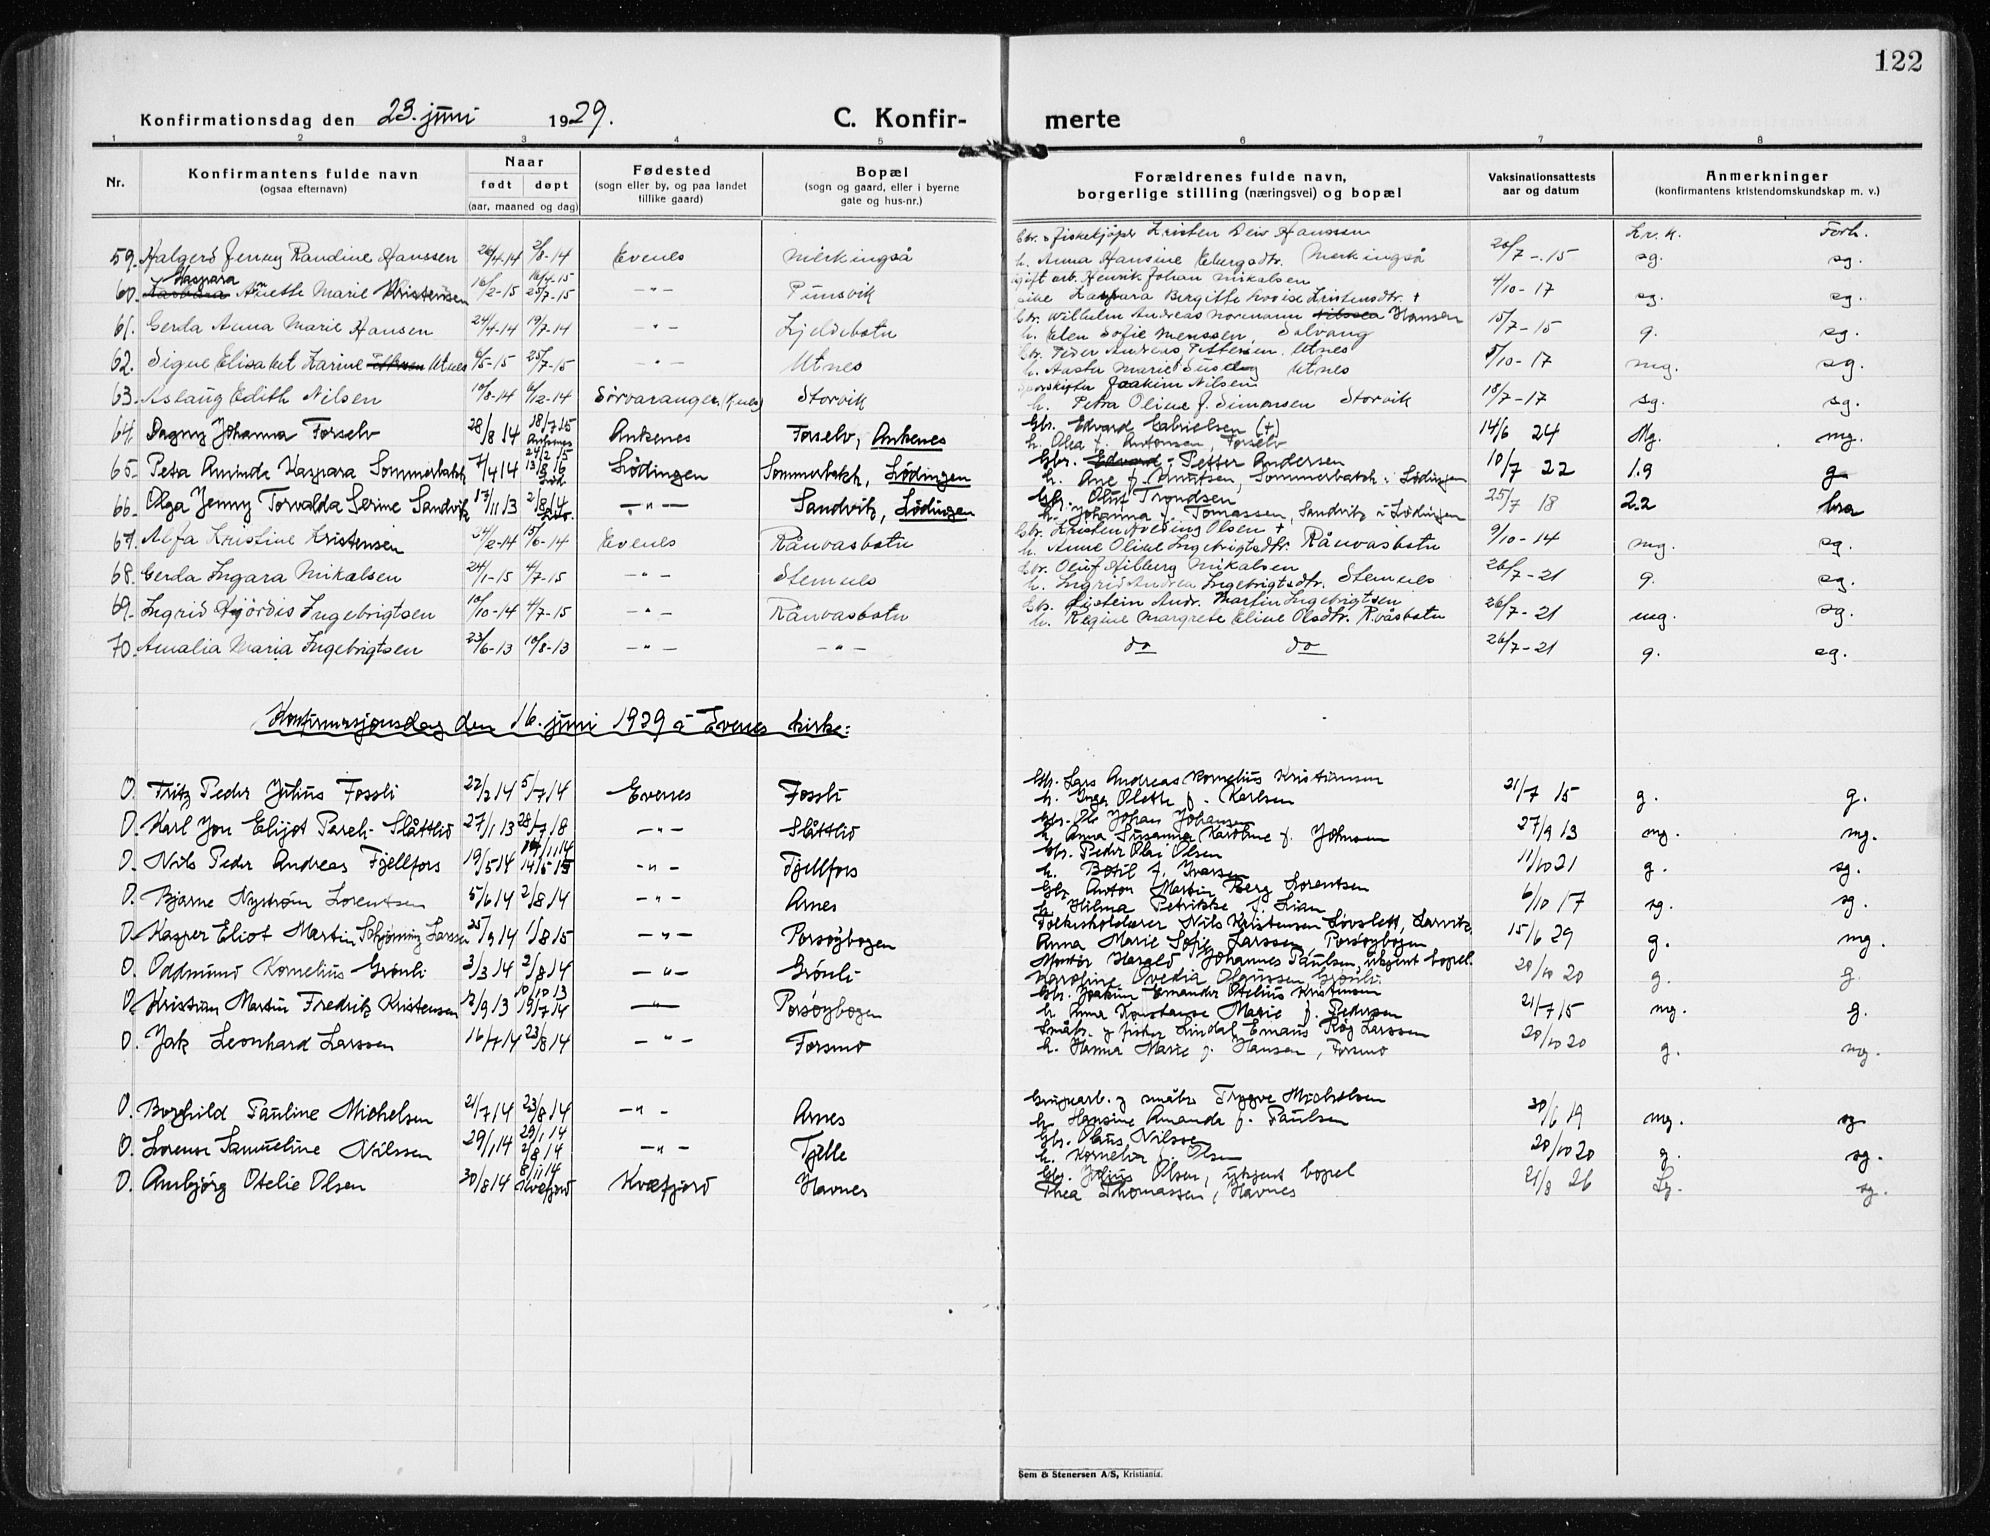 122
Konfirmationsdag den 23. juni 1929.
C. Konfirmerte
1 2 3 4 5 6 7 8
Nr.
Konfirmantens fulde navn
(ogsaa efternavn)
Naar
født døpt
(aar, maaned og dag)
Fødested
(sogn eller by, og paa landet
tillike gaard)
Bopæl
(sogn og gaard, eller i byerne
gate og hus-nr.)
Forældrenes fulde navn,
borgerlige stilling (næringsvei) og bopæl
Vaksinationsattests
aar og datum
Anmerkninger
(konfirmantens kristendomskundskap m. v.)
Kr. k. Forh.
59. Halgerd Jenny Randine Hanssen 26/4-14 2/8-14 Evenes
h. Anna Hansine 20/7-15 sg. sg.
Kaspara
60. Anette Marie Kristensen 16/2-15 25/7-15 -"- Punsvik
gift arb. Henrik Johan Mikalsen
Bergitte Kristensdtr. + 4/10-17 sg. sg.
61. Gerda Anna Marie Hansen 24/4-14 19/7-14 -"- Kjeldebotn
Gbr. Wilhelm Andreas Normann Hansen
h. Elen Sofie 15/7-15 g. sg.
62. Signe Elisabet Karine Utnes 6/5-15 25/7-15 -"- Utnes
Gbr. Peder Andreas Pettersen, Utnes
h. Aasta Marie Utnes 5/10-17 mg. sg.
63. Aslaug Edith Nilsen 10/8-14 6/12-14 Sørvaranger Storvik
Joakim Nilsen
h. Petra Oline f. Simonsen Storvik 18/7-17 sg. sg.
64. Dagny Johanna Forselv 28/8 14 18/7 15 Ankenes Ankenes Forselv, Ankenes
Gbr. Edvard Gabrielsen (+)
h. Olea f. Antonsen, Forselv 14/6 24 Mg. mg.
65. Petra Aminda Kaspara Sommerbakk 7/4 14 Lødingen Sommerbakk, Lødingen
Gbr. Edvard Petter Andersen
h. Ane f. Knutsen, Sommerbakk i Lødingen 10/7 22 1.9 g
66. Olga Jenny Torvalda Serine Sandvik 13/11 13 2/8 14 -"- Sandvik, Lødingen
Gbr. Olus Trondsen
h. Johanna f. Tomassen, Sandvik i Lødingen 25/7 18 2.2 bra
67. Alfa Kristine Kristensen 24/2-14 15/6-14 Evenes Rånvasbotn
Gbr. Kristen Olsen +
h. Anne Oline Ingebrigtsdtr. Rånvasbotn 9/10-14 mg. sg.
68. Gerda Ingara Mikalsen 24/1-15 4/7-15 -"- Stemnes
Gbr. Oluf Mikalsen
h. Ingrid Andrea Ingebrigtsdtr. Stemnes 26/7-21 g. sg.
69. Ingrid Hjördis Ingebrigtsen 10/10-14 4/7-15 -"- Rånvasbotn
Gbr. Eistein Andr. Martin Ingebrigtsen
h. Regine Margrete Eline Olsdtr. Råsbotn 26/7-21 mg. sg.
70. Amalia Maria Ingebrigtsen 23/6-13 10/8-13 -"- -"- do do 26/7-21 g. sg.
Konfirmasjonsdag den 16. juni 1929 i Evenes kirke:
O. Fritz Peder Julius Fossli 22/2 14 5/7 14 Evenes Fossli
Gbr. Lars Andreas Kornelius Kristiansen
h. Inga Olette f. Karlsen 21/7 15 g. g.
O. Karl Jon Elijot Slåttlid 27/1 13 28/7 18 -"- Slåttlid
Gbr. Ole Johan Johansen
h. Anna Susanna Karoline f. Johnsen 27/9 13 mg. mg.
O. Nils Peder Andreas Fjellfors 19/5 14 -"- Fjellfors
Gbr. Peder Olai Olsen
h. Botil f. Ivarsen 11/10 21 g. sg.
O. Bjarne Nystrøm Lorentsen 5/6 14 2/8 14 -"- Arnes
Gbr. Anton Martin Berg Lorentsen
h. Hilma Petrikke f. Lian 6/10 17 sg. sg.
O. Kasper Eliot Martin Schjønning Larssen 25/9 14 1/8 15 -"- Porsøybogen
Nils Kristensen Lovslett, Larvik
Anna Marie Sofie Larssen, Porsøybogen 15/6 29 g. mg.
O. Oddmund Kornelius Grønli 3/3 14 2/8 14 -"- Grønli
Montør Harald Johannes Paulsen, ukjent bopel.
Karoline Ovedia Olaussen, Grønli. 20/10 20 g. g.
O. Kristian Martin Fredrik Kristensen 12/9 13 -"- Porsøybogen
Gbr. Joakim Emander Otelius Kristiansen
h. Anna Konstanse Marie f. Pedersen 21/7 15 mg. g.
O. Jak Leonhard Larssen 16/7 14 23/8 14 -"- Forsmo
Småbr. g fisker Lindal Emaus Røg Larssen
h. Hanna Marie f. Hansen, Forsmo 20/10 20 g. mg.
O. Borghild Pauline Michelsen 21/7 14 23/8 14 -"- Arnes
Gruvearb. g småbr. Trygve Michelsen
h. Hansine Amanda f. Paulsen 30/6 19 mg. sg
O. Lorense Samueline Nilssen 29/1 14 2/8 14 -"- Fjelle
Gbr. Olaus Nilssen
h. Kornelia f. Olsen 20/10 20 g. sg.
O. Ambjørg Otelie Olsen 30/8 14 8/11 14 Kvæfjord Kvæfjord Havnes
Gbr. Julius Olsen, ukjent bopel
Thea Thomassen, Havnes 21/8 26 sg.
Sem & Stenersen A/S, Kristiania.